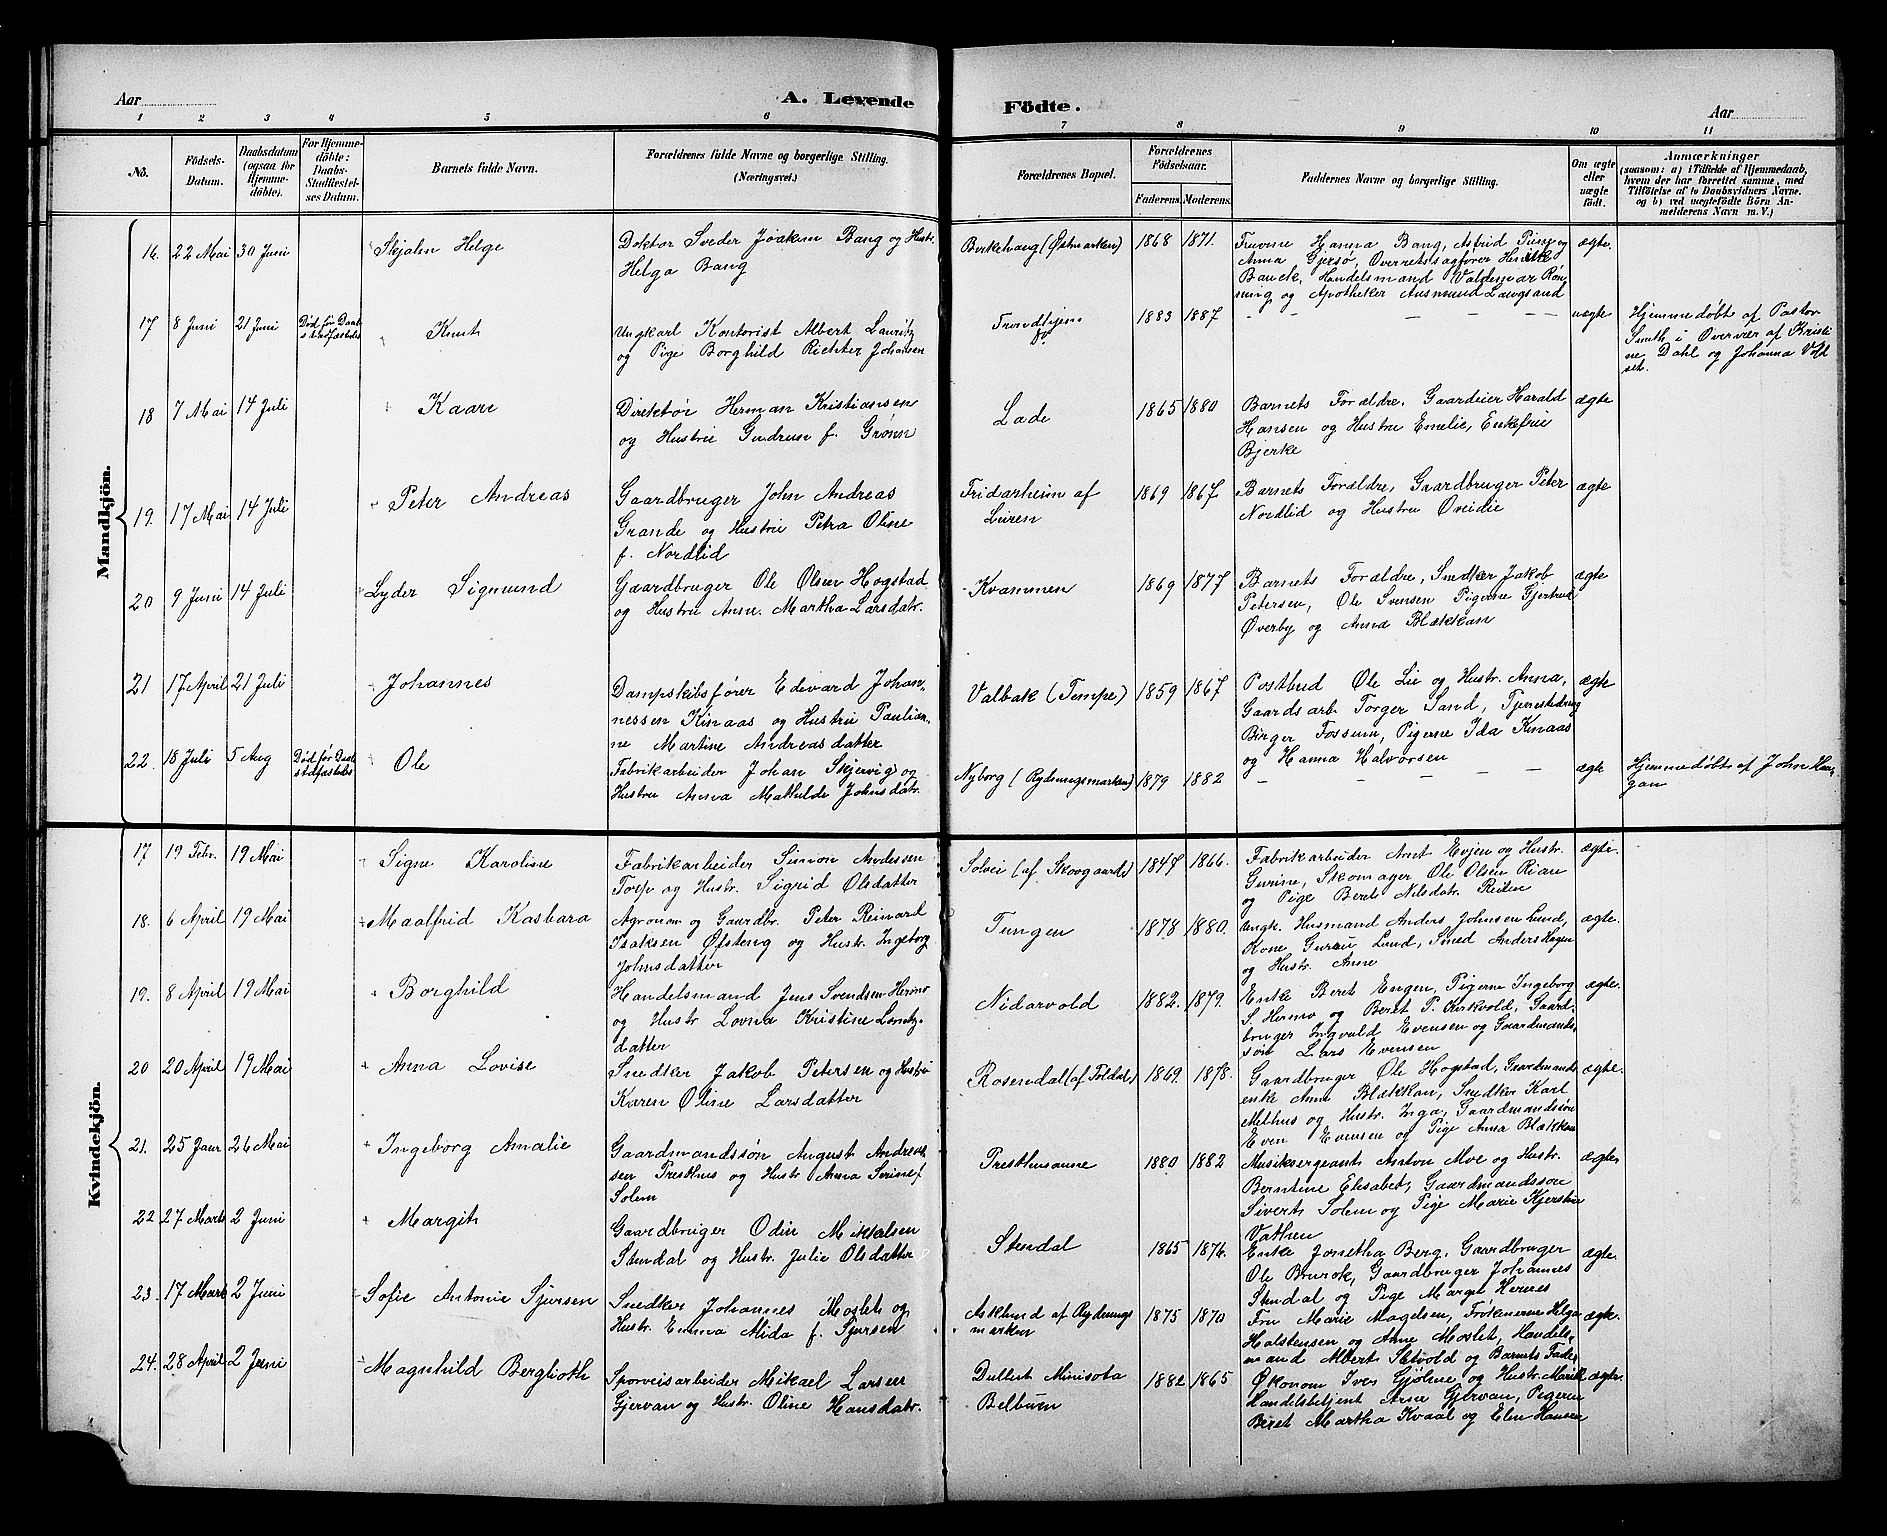 Aar
A. Levende
Födte.
Aar
1 2 3 4 5 6 7 8 9 10 11
No.
Födsels-
Datum.
Daabsdatum
(ogsaa for
Hjemme-
döbte).
For Hjemme-
döbte:
Daabs-
Stadfæstel-
ses Datum.
Barnets fulde Navn.
Forældrenes fulde Navne og borgerlige Stilling.
(Næringsvei.)
Forældrenes Bopæl.
Forældrenes
Födselsaar.
Faderens. Moderens.
Faddernes Navne og borgerlige Stilling.
Om ægte
eller
uægte
födt.
Anmærkninger
(saasom: a) i Tilfælde af Hjemmedaab,
hvem der har forrettet samme, med
Tilföielse af to Daabsvidners Navne,
og b) ved uægtefödte Börn An-
melderens Navn m. V.)
Mandkjön.
16. 22 Mai 30 Juni Skjalm Helge
Doktor Sveder Joakim Bang og Hustr.
Helga Bang
Birkehaug (Østmarken) 1868 1871.
Fruerne Hanna Bang, Astrid
Anna Gjersø, Overretssagfører Henrik
Bauck, Handelsmand Valdemar Røn-
ning og Apotheker Aasmund Laugsand
ægte.
17 8 Juni 21 Juni Død før Daab-
stadfæstelse Knut
Ungkarl Kontorist Albert Lauritz
og Pige Borghild Richter Johansen
Trondhjem 1883 1887 – – – – – uægte
Hjemmedøbt af Pastor
Smith i Overvær af Kristi
ne Dahl og Johanna Vold
set.
18 7 Mai 14 Juli Kaare
Direktør Herman Kristiansen
og Hustru Gudrun f. Grønn
Lade 1865 1880
Barnets Forældre, Gaardeier Harald
Hansen og Hustru Emelie, Enkefrue
Bjerke
ægte
19. 17 Mai 14 Juli Peter Andreas
Gaardbruger John Andreas
Grande og Hustru Petra Oline
f. Nordlid
Fridarheim af
Leren
1869 1867
Barnets Forældre, Gaardbruger Peter
Nordlid og Hustru Ovidie
ægte
20 9 Juni 14 Juli Lyder Sigmund
Gaardbruger Ole Olsen Hogstad
og Hustru Anne Martha Larsdatr.
Kvammen 1869 1877
Barnets Forældre, Snedker Jakob
Petersen, Ole Svensen Pigerne Gjertrud
Øverby og Anna Blækkan
ægte
21 17 April 21 Juli Johannes
Dampskibsfører Edevard Johan-
nessen Kinaas og Hustru Paulian-
ne Martine Andreasdatter
Valbak (Tempe) 1859 1867
Postbud Ole Lie og Hustr. Anna,
Gaardsarb. Torger Sand, Tjenestedreng
Birger Fossum, Pigerne Ida Kinaas
og Hanna Halvorsen
ægte
22. 18 Juli 5 Aug Død før Daab-
stadfæstelse Ole
Fabrikarbeider Johan Skjervig og
Hustru Anna Mathilde Johnsdatr.
Nyborg (Rydningsmarken) 1879 1882 – – – – – – ægte
Hjemmedøbt af John Hau-
gan
Kvindekjön.
17 19 Febr. 19 Mai Signe Karoline
Fabrikarbeider Simon Andersen
Torp og Hustr. Sigrid Olsdatter
Solvei (af Skovgaard) 1847 1866.
Fabrikarbeider Arnt Evjen og Hustr.
Gurine, Skomager Ole Olsen Rian
og Pige Beret Nilsdatr. Reiten
ægte.
18. 6 April 19 Mai Maalfrid Kasbara
Agronom og Gaardbr. Peter Reinard
Isaksen Øfsteng og Hustr. Ingeborg
Johnsdatter
Tungen 1878 1880.
ungk. Husmand Anders Johnsen Lund,
Kone Guruu Lund, Smed Anders Hagen
og Hustr. Anne
ægte.
19. 8 April 19 Mai Borghild
Handelsmand Jens Svendsen Hermo
og Hustr Lovna Kristine Lorntz-
datter
Nidarvold 1882. 1879.
Enke Beret Engen, Pigerne Ingeborg
S. Hermo og Beret P. Kirkvold, Gaard-
bruger Ingvald Evensen og Gaardmands-
søn Lars Evensen
ægte.
20 20 April 19 Mai Anna Lovise
Snedker Jakob Petersen og Hustru
Karen Oline Larsdatter
Rosendal (af Toldal) 1869. 1878.
Gaardbruger Ole Hogstad, Gaardmands
enke Anne Blækkan, Snedker Karl
Melhus og Hustr. Inga, Gaardmandssøn
Even Evensen og Pige Anna Blækkan
ægte.
21. 25 Janr 26 Mai Ingeborg Amalie
Gaardmandssøn August Andreas-
sen Presthus og Hustr Anna Serine f.
Solem
Presthusaune 1880 1882
Musiksergeant Anton Moe og Hustr.
Berntine Elisabet, Gaardmandssøn
Sivert Solem og Pige Marie Kjerstin
Vatnen
ægte
22 27 Marts 2 Juni Margit
Gaardbruger Odin Mikkelsen
Stendal og Hustr. Julie Olsdatter
Stendal 1865 1876.
Enke Jonetha Berg, Gaardbruger
Ole Brurok, Gaardbruger Johannes
Stendal og Pige Marget Hernes
ægte.
23. 17 Marts 2 Juni Sofie Antonie Sjursen
Snedker Johannes Moslet og
Hustr. Emma Alida f. Sjursen
Asklund af Rydnings
marken
1875 1870
Fru Marie Magelsen, Frøknerne Helga
Halstensen og Anne Moslet, Handels-
mand Albert Setvold og Barnets Fader
ægte.
24. 28 April 2 Juni Magnhild Berglioth
Sporveisarbeider Mikael Larsen
Gjervan og Hustr. Oline Hansdatr.
Dullut Minisota
Belbuen
1882 1865
Økonom Iver Gjølme og Hustr. Marit
Handelsbetjent Arne Gjervan, Pigerne
Beret Martha Kvaal og Elen Hansen
ægte.